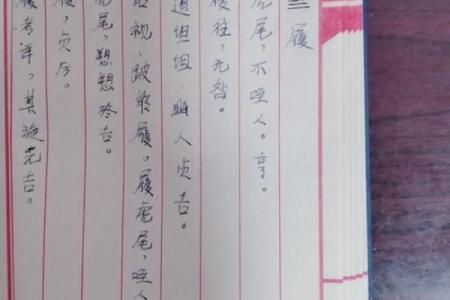 履
虎尾,不咥人。亨。
履往,无咎。
道坦坦,幽人贞吉。
能视,跛能履。履虎尾,咥人
虎尾,愬愬终吉。
履,贞厉。
履考详,其旋元吉。